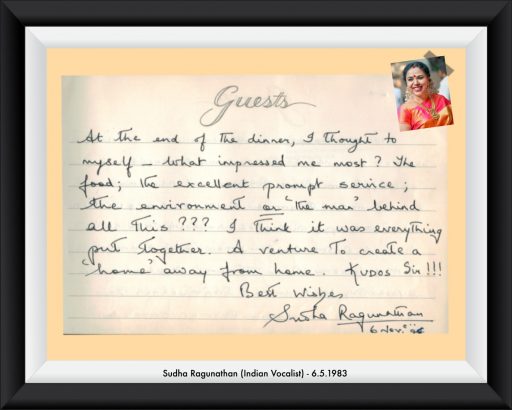 Guests
At the end of the dinner, I thought to
myself – what impressed me most? The
food; the excellent prompt service;
the environment or 'the man' behind
all this??? I think it was everything
put together. A venture to create a
'home' away from home. Kudos Sir!!!
Best Wishes
Sudha Ragunathan
6 Nov. '06
Sudha Ragunathan (Indian Vocalist) - 6.5.1983